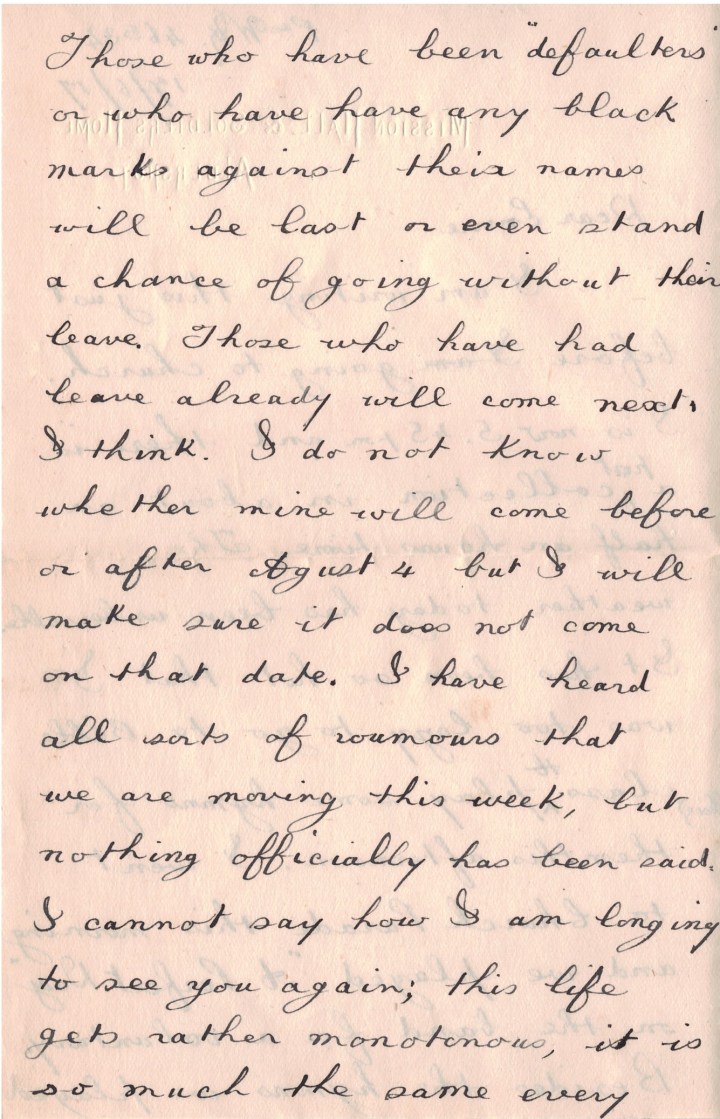 Those who have been "defaulters"
or who have have any black
marks against their names
will be last or even stand
a chance of going without their
leave. Those who have had
leave already will come next,
I think. I do not know
whether mine will come before
or after Agust 4 but I will
make sure it does not come
on that date. I have heard
all sorts of roumours that
we are moving this week, but
nothing officially has been said.
I cannot say how I am longing
to see you again; this life
gets rather monotonous, it is
so much the same every